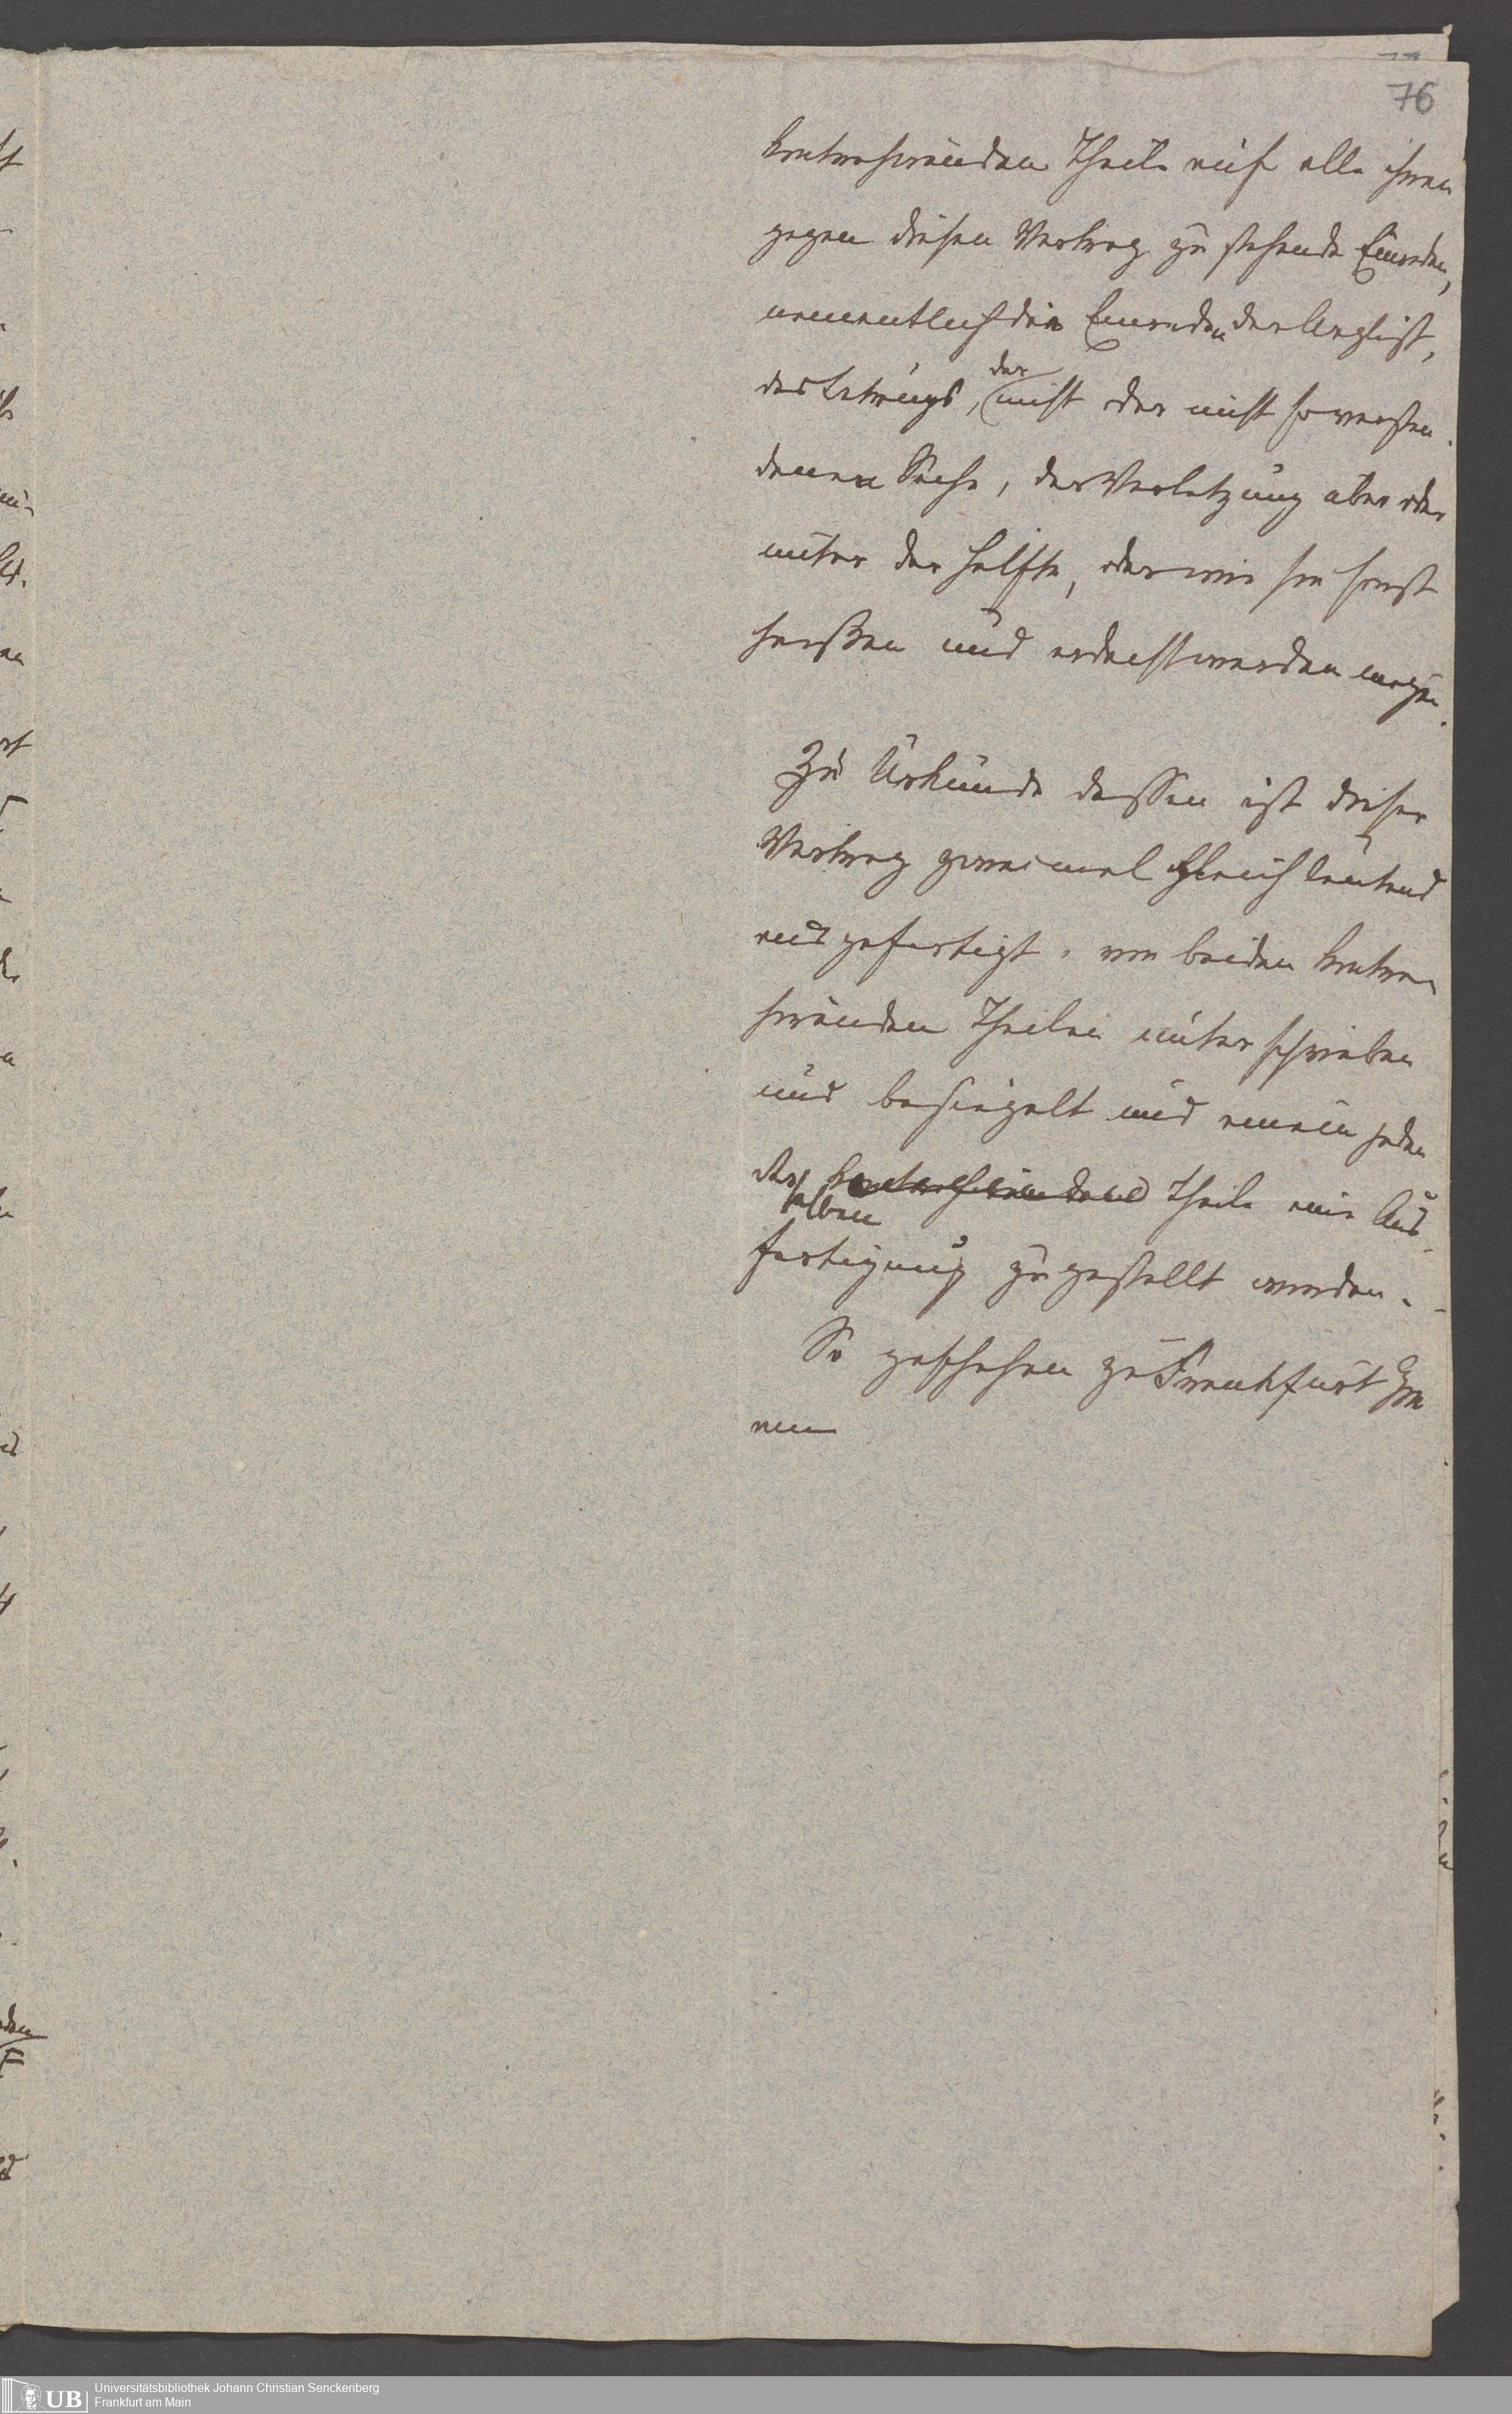 76
kontrahirenden Theile auf alle ihnen
gegen diesen Vertrag zu stehende Einreden,
namentlich die Einreden der Arglist,
des Betrugs, der nicht oder nicht so verstan-
denen Sache, der Verletzung über oder
unter der Hälfte, oder wie sie sonst
heißen und erdacht werden mögen.
Zu Urkunde dessen ist dieser
Vertrag zweimal gleichlautend
ausgefertigt, von beiden kontra
hirenden Theilen unterschrieben
und besiegelt und einem jeden
der kontrahirenden Theile eine Aus-
selben
fertigung zugestellt worden.
So geschehen zu Frankfurt
am
UB
Universitätsbibliothek Johann Christian Senckenberg
Frankfurt am Main